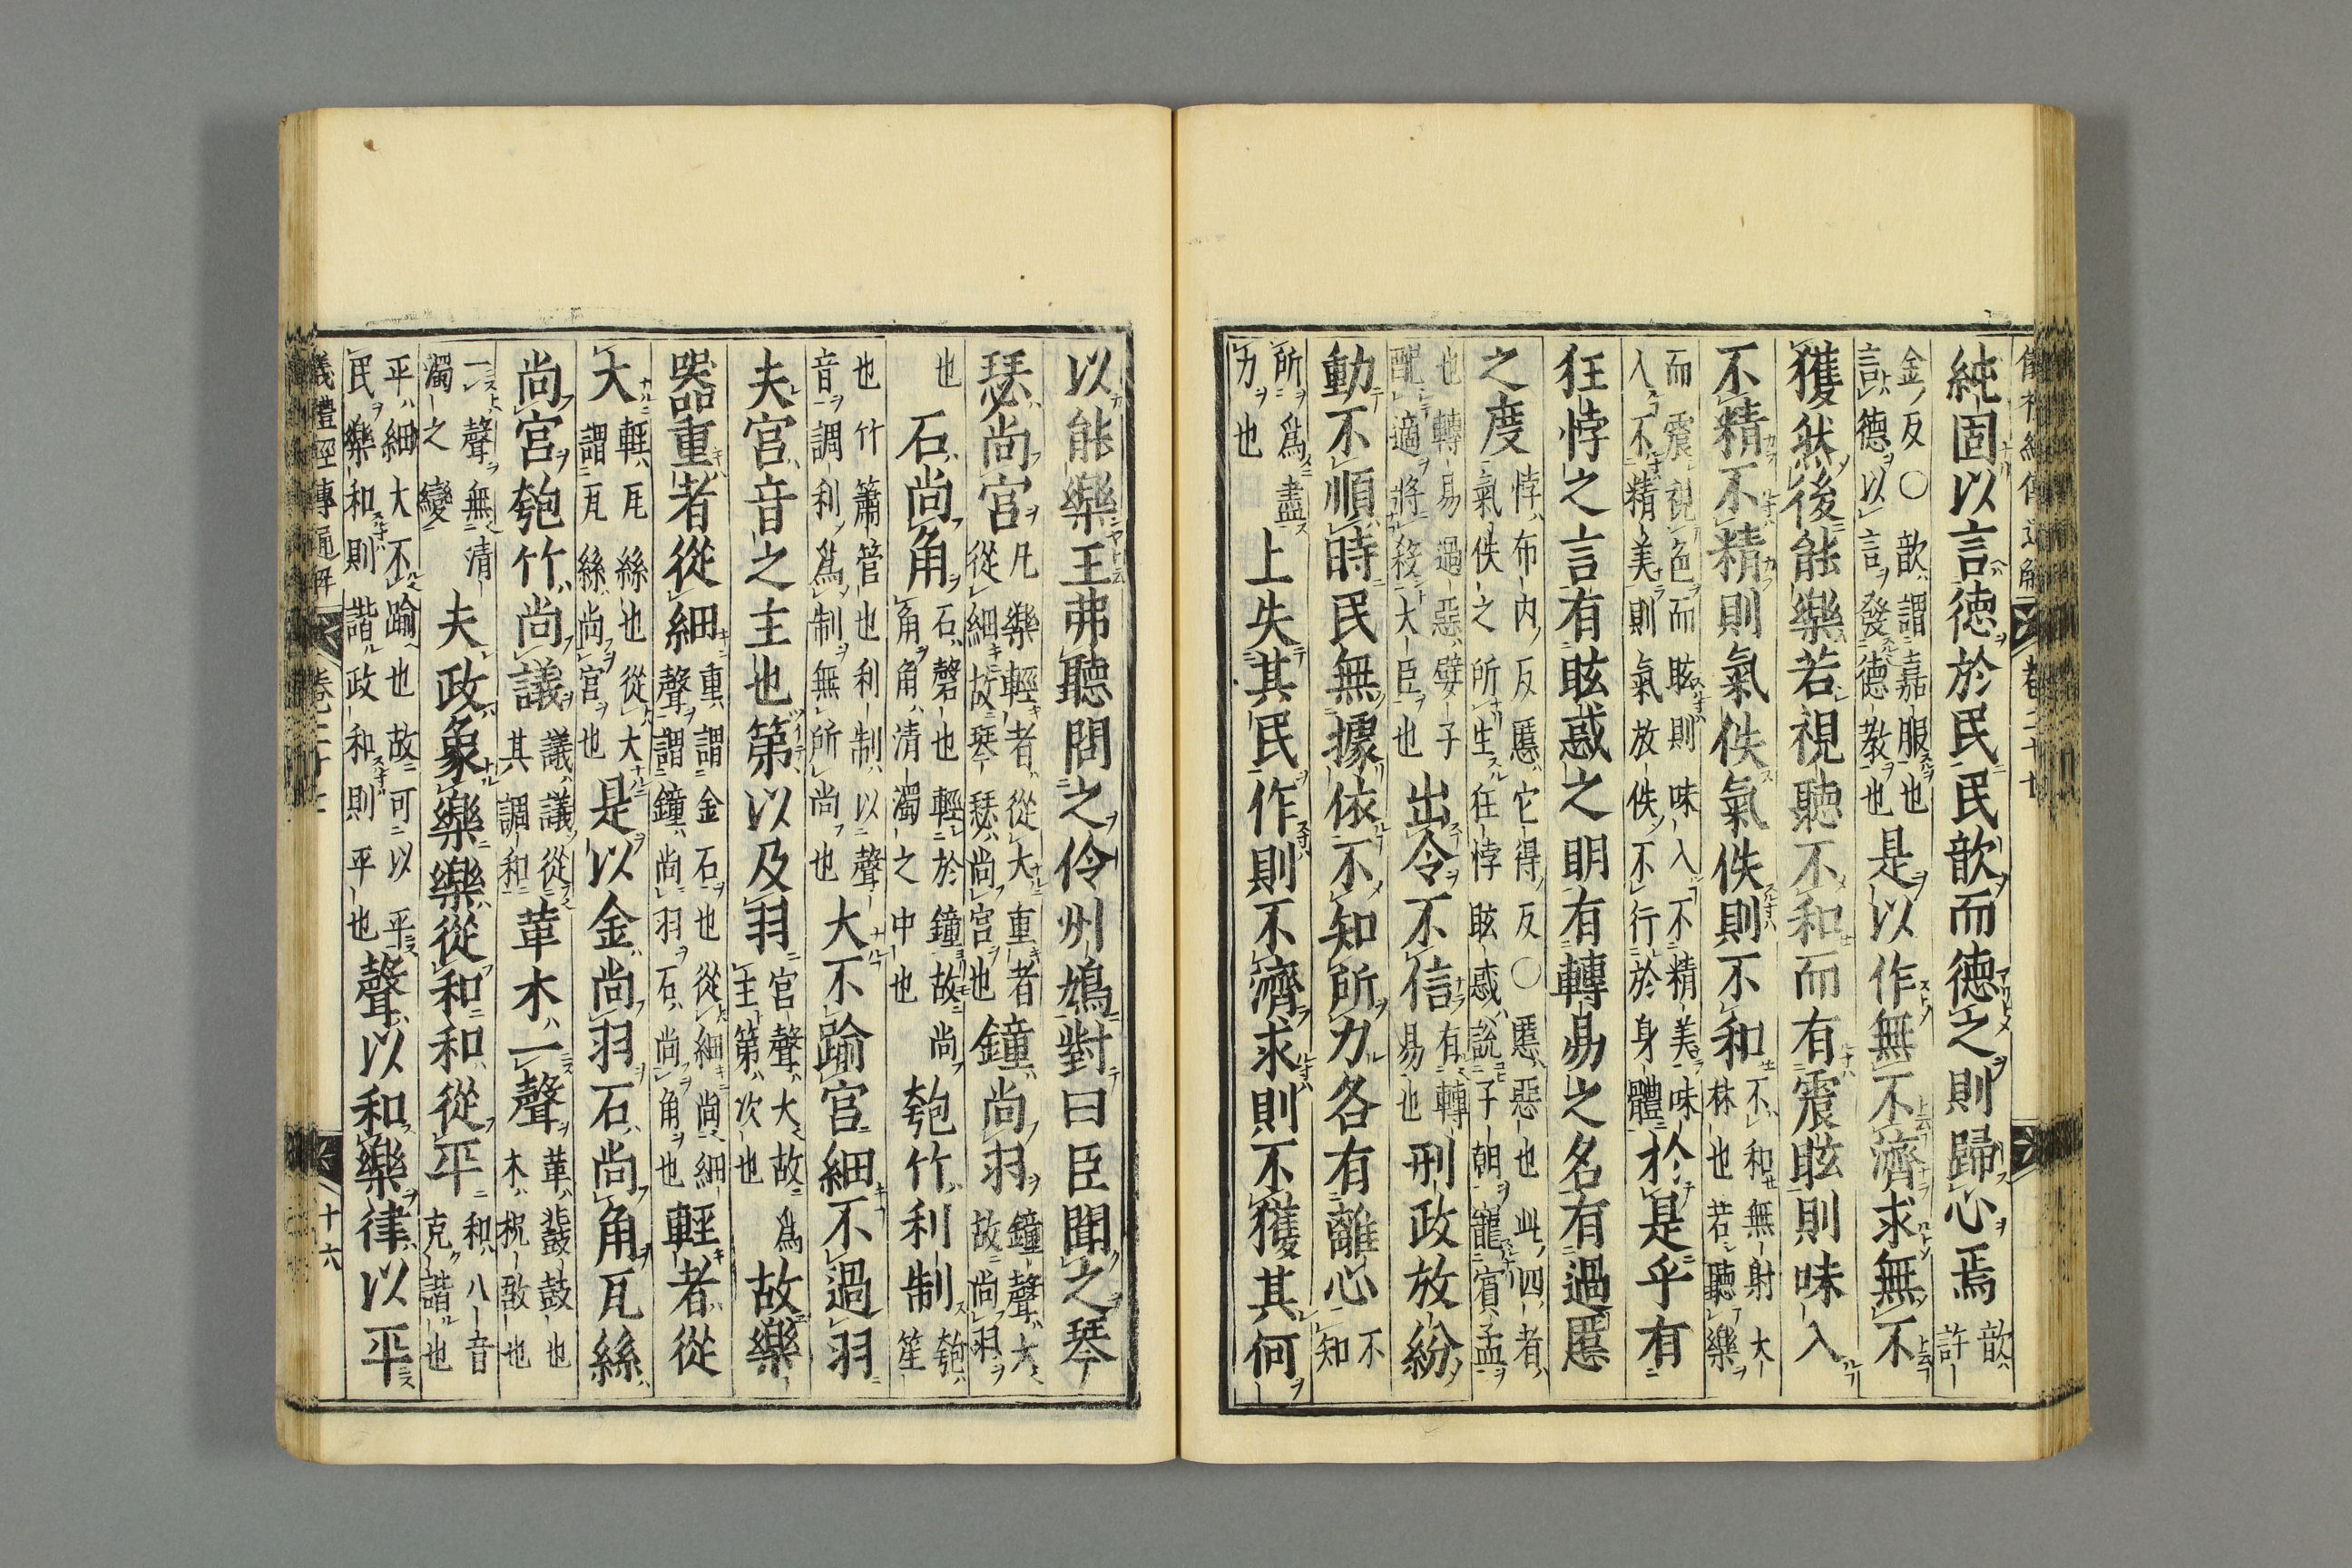 純固以言德於民民歆而德之則歸心焉歆許
金反○歆謂嘉服也
言德以言發德教也是以作無不濟求無不
獲然後能樂若視聽不和而有震眩則味入
不精不精則氣佚氣佚則不和不和無射大
林也若聽樂
而震視色而眩則味入不精美味
入不精美則氣放佚不行於身體於是乎有
狂悖之言有眩惑之明有轉易之名有過慝
之度悖布內反慝它得反○慝惡也此四者
氣佚之所生狂悖眩惑說子朝寵賓孟
也轉易過惡嬖子
配適將殺大臣也出令不信有轉
易也刑政放紛
動不順時民無據依不知所力各有離心不
知
所爲盡
力也上失其民作則不濟求則不獲其何
儀禮經傳通解 卷二十七
以能樂王弗聽問之伶州鳩對曰臣聞之琴
瑟尚宮凡樂輕者從大重者
從細故琴瑟尚宮也鐘尚羽鐘聲大
故尚羽
也石尚角石磬也輕於鐘故尚
角角清濁之中也匏竹利制匏
笙
也竹簫管也利制以聲
音調利爲制無所尚也大不踰宮細不過羽
夫宮音之主也第以及羽宮聲大故爲
主第次也故樂
器重者從細重謂金石也從細尚細
聲謂鐘尚羽石尚角也輕者從
大輕瓦絲也從大
謂瓦絲尚宮也是以金尚羽石尚角瓦絲
尚宮匏竹尚議議議從
其調和革木一聲革鼗鼓也
木柷敔也
一聲無清
濁之變夫政象樂樂從和和從平和八音
克諧也
平細大不踰也故可以平
民樂和則諧政和則平也聲以和樂律以平
儀禮經傳通解 卷二十七 十六